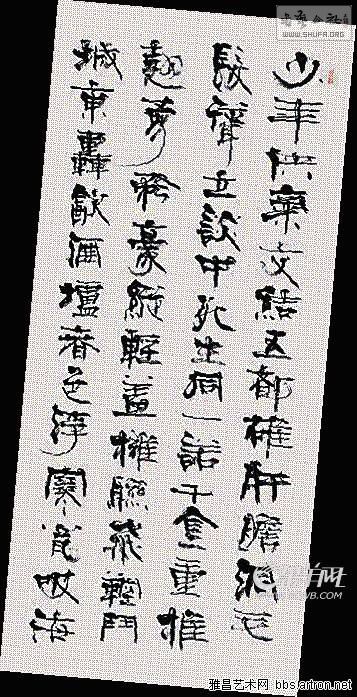 WWW.SHUFA.ORG
少年俠氣交結五都雄肝膽洞毛
髮聳立談中死生同一諾千金重推
翹勇矜豪縱輕盖擁聯飛鞚鬥
城東轟飲酒壚春色浮寒瓮吸海
雅昌艺术网 bbs.artron.net